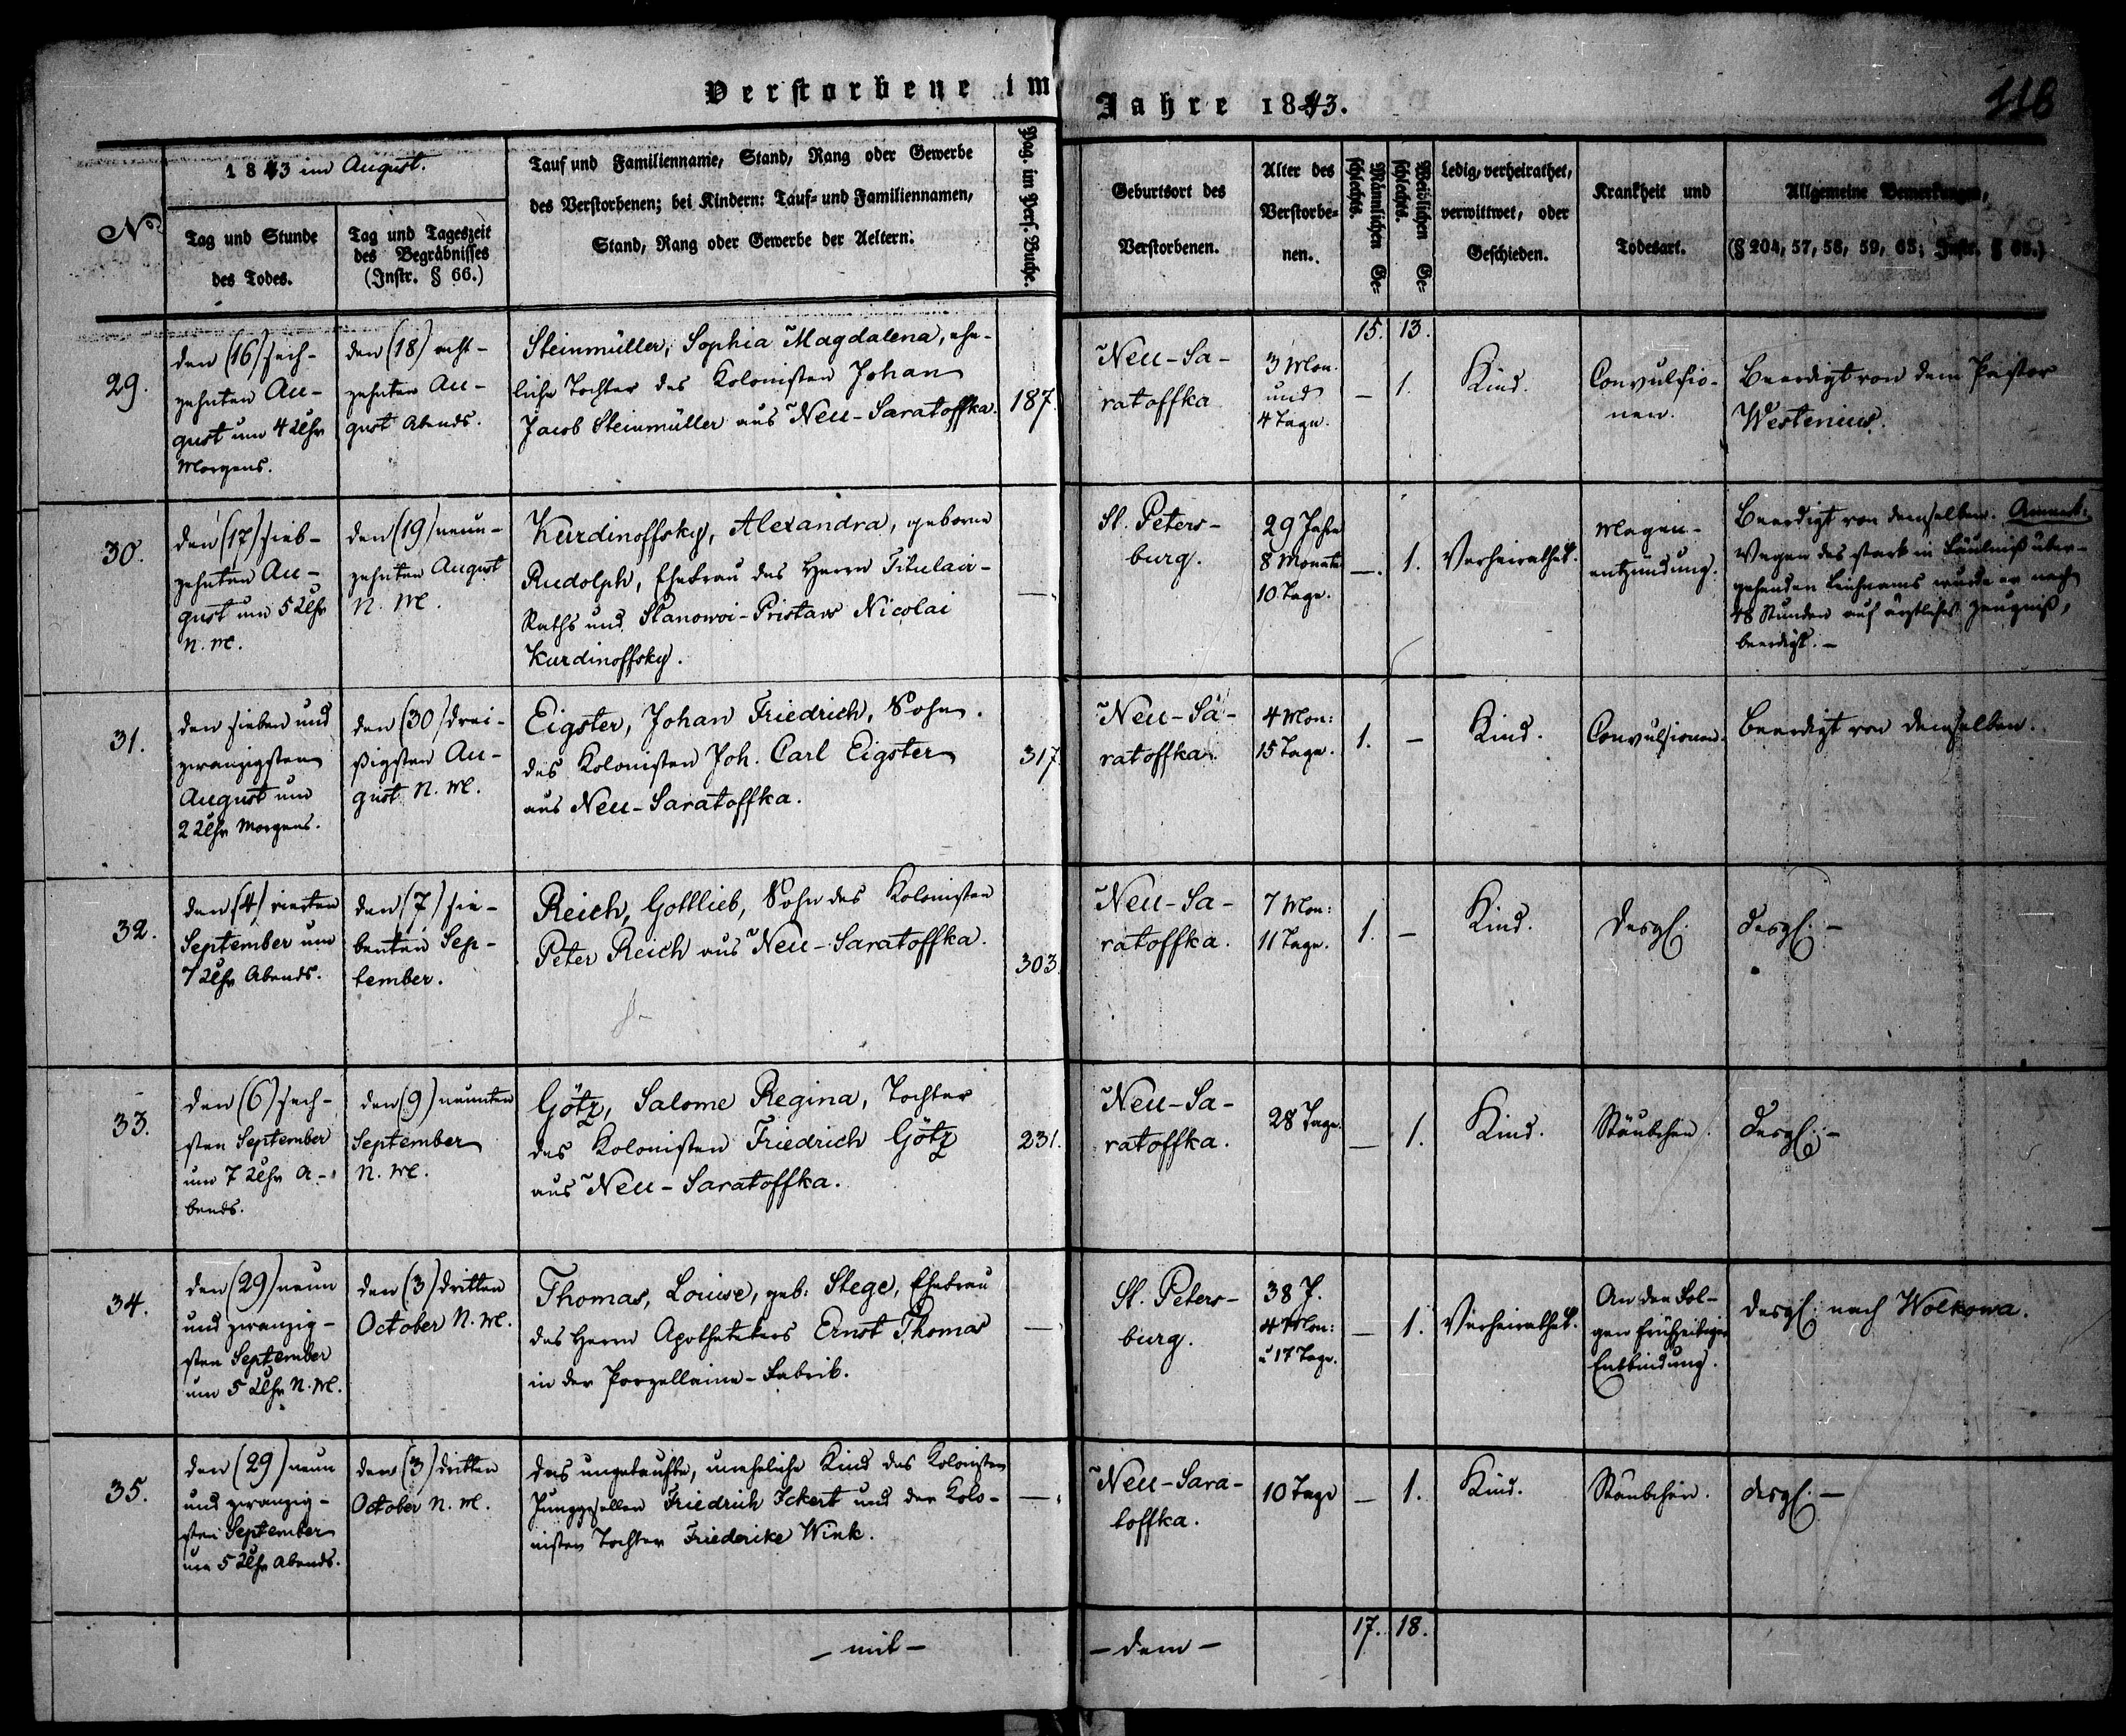 Verstorbene im Jahre 1843.
118
No
1843 im August.
Tag und Stunde
des Todes.
Tag und Tageszeit
des Begräbnisses
(Instr. § 66.)
Tauf und Familienname, Stand, Rang oder Gewerbe
des Verstorbenen; bei Kindern: Tauf- und Familiennamen,
Stand, Rang oder Gewerbe der Aeltern.
Pag. im Pers. Buche.
Geburtsort des
Verstorbenen.
Alter des
Verstorbe-
nen.
Männlichen Ge-
schlechts.
Weiblichen Ge-
schlechts.
Ledig, verheirathet,
verwittwet, oder
Geschieden.
Krankheit und
Todesart.
Allgemeine Bemerkungen,
(§ 204, 57, 58, 59, 65; Instr. § 65.)
15. 13.
29.
den (16) sech-
zehnten Au-
gust um 4 Uhr
Morgens.
den (18) acht-
zehnten Au-
gust Abends.
Steinmüller, Sophia Magdalena, ehe-
liche Tochter des Kolonisten Johan
Jacob Steinmüller aus Neu-Saratoffka.
187.
Neu-Sa-
ratoffka
3 Mon.
und
4 Tage.
—
1.
Kind.
Convulsio-
nen.
Beerdigt von dem Pastor
Westenius.
30.
den (17) sieb-
zehnten Au-
gust um 5 Uhr
N. M.
den (19) neun-
zehnten August
N. M.
Kurdinoffsky, Alexandra, geborne
Rudolph, Ehefrau des Herrn Titulair-
Raths und Stanowoi-Pristaw Nicolai
Kurdinoffsky.
—
St. Peters-
burg.
29 Jahre
8 Monate
10 Tage.
—.
1.
Verheirathet.
Magen-
entzündung.
Beerdigt von demselben. Anmerk:
Wegen des stark in Fäulniß über-
gehenden Leichnams wurde er nach
48 Stunden auf ärztliches Zeugniß,
beerdigt. —
31.
den sieben und
zwanzigsten
August um
2 Uhr Morgens.
den (30) drei-
ßigsten Au-
gust N. M.
Eigster, Johan Friedrich, Sohn
des Kolonisten Joh. Carl Eigster
aus Neu-Saratoffka.
317
Neu-Sa-
ratoffka.
4 Mon:
15 Tage.
1.
—
Kind.
Convulsionen.
Beerdigt von demselben.
32.
den (4) vierten
September um
7 Uhr Abends.
den (7) sie-
benten Sep-
tember.
Reich, Gottlieb, Sohn des Kolonisten
Peter Reich aus Neu-Saratoffka.
303.
Neu-Sa-
ratoffka.
7 Mon:
11 Tage.
1.
—
Kind.
desgl.
desgl. —
33.
den (6) sech-
sten September
um 7 Uhr A-
bends.
den (9) neunten
September
N. M.
Götz, Salome Regina, Tochter
des Kolonisten Friedrich Götz
aus Neu-Saratoffka.
231.
Neu-Sa-
ratoffka.
28 Tage.
—
1.
Kind.
Stäubchen.
desgl. —
34.
den (29) neun
und zwanzig-
sten September
um 5 Uhr N. M.
den (3) dritten
October N. M.
Thomas, Louise, geb: Stege, Ehefrau
des Herrn Apothekers Ernst Thomas
in der Porzellaine-Fabrik.
—
St. Peters-
burg.
38 J.
4 Mon:
u 17 Tage.
—
1.
Verheirathet.
An den Fol-
gen frühzeitiger
Entbindung.
desgl: nach Wolkowa.
35.
den (29) neun
und zwanzig-
sten September
um 5 Uhr Abends.
den (3) dritten
October N. M.
Das ungetaufte, uneheliche Kind des Kolonisten
Junggesellen Friedrich Eckert und der Kolo-
nisten Tochter Friederike Wink.
—.
Neu-Sara-
toffka.
10 Tage
—
1.
Kind.
Stäubchen.
desgl. —
— mit —
— dem —
17. 18.